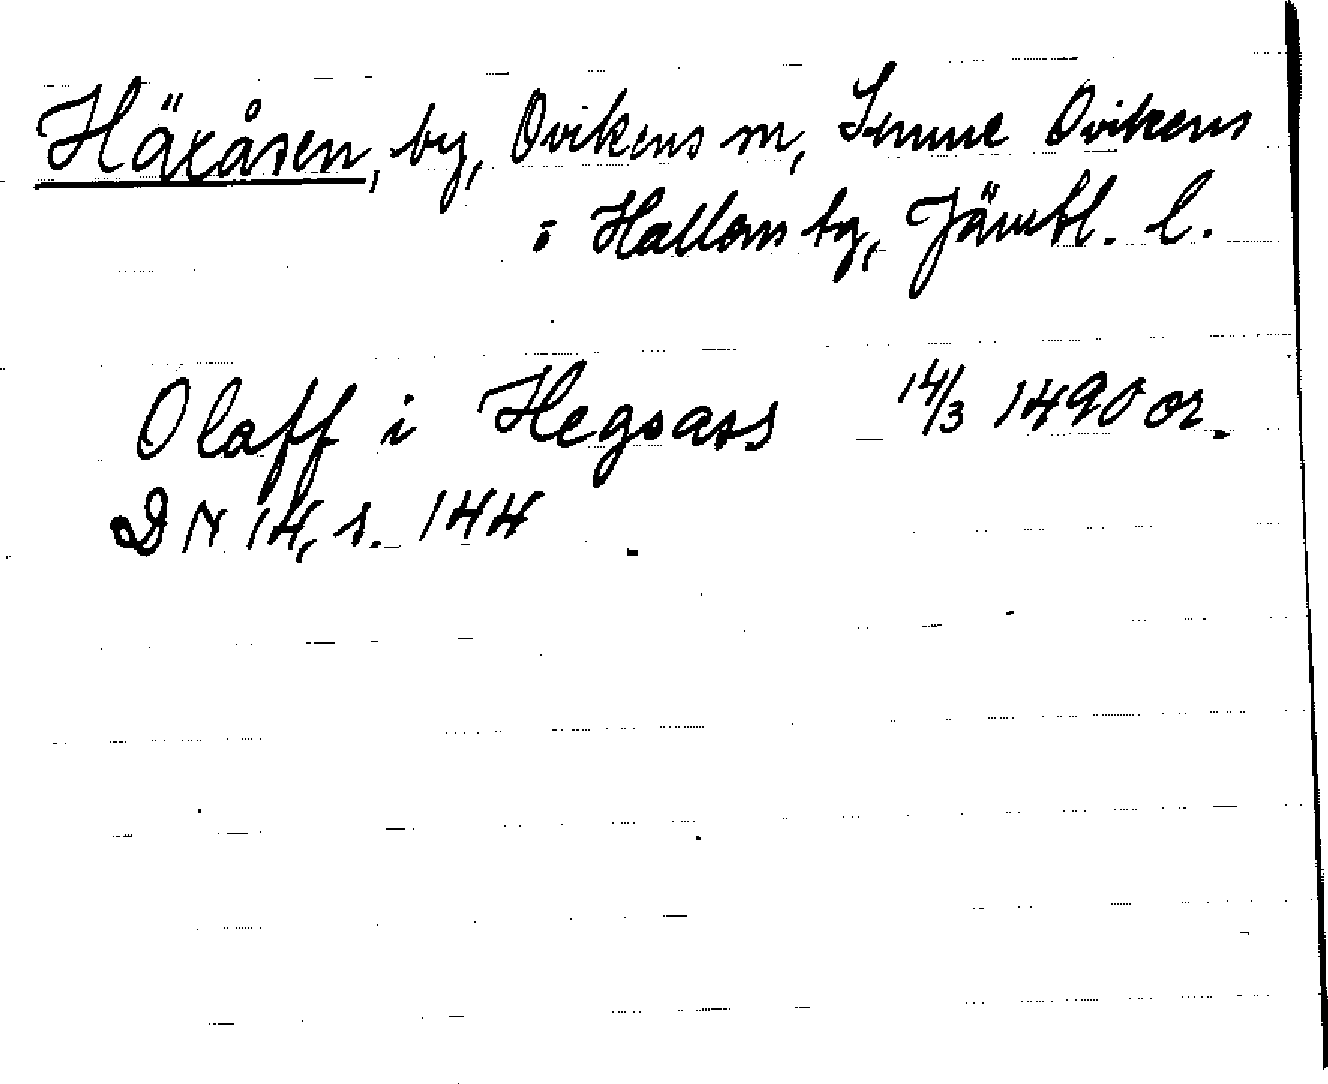 Häxåsen, by, Ovikens sn, Sunne Ovikens
o Hallens tg, Jämtl. l.
Olaff i Hegsass 14/3 1490 or.
DN 14, s. 144